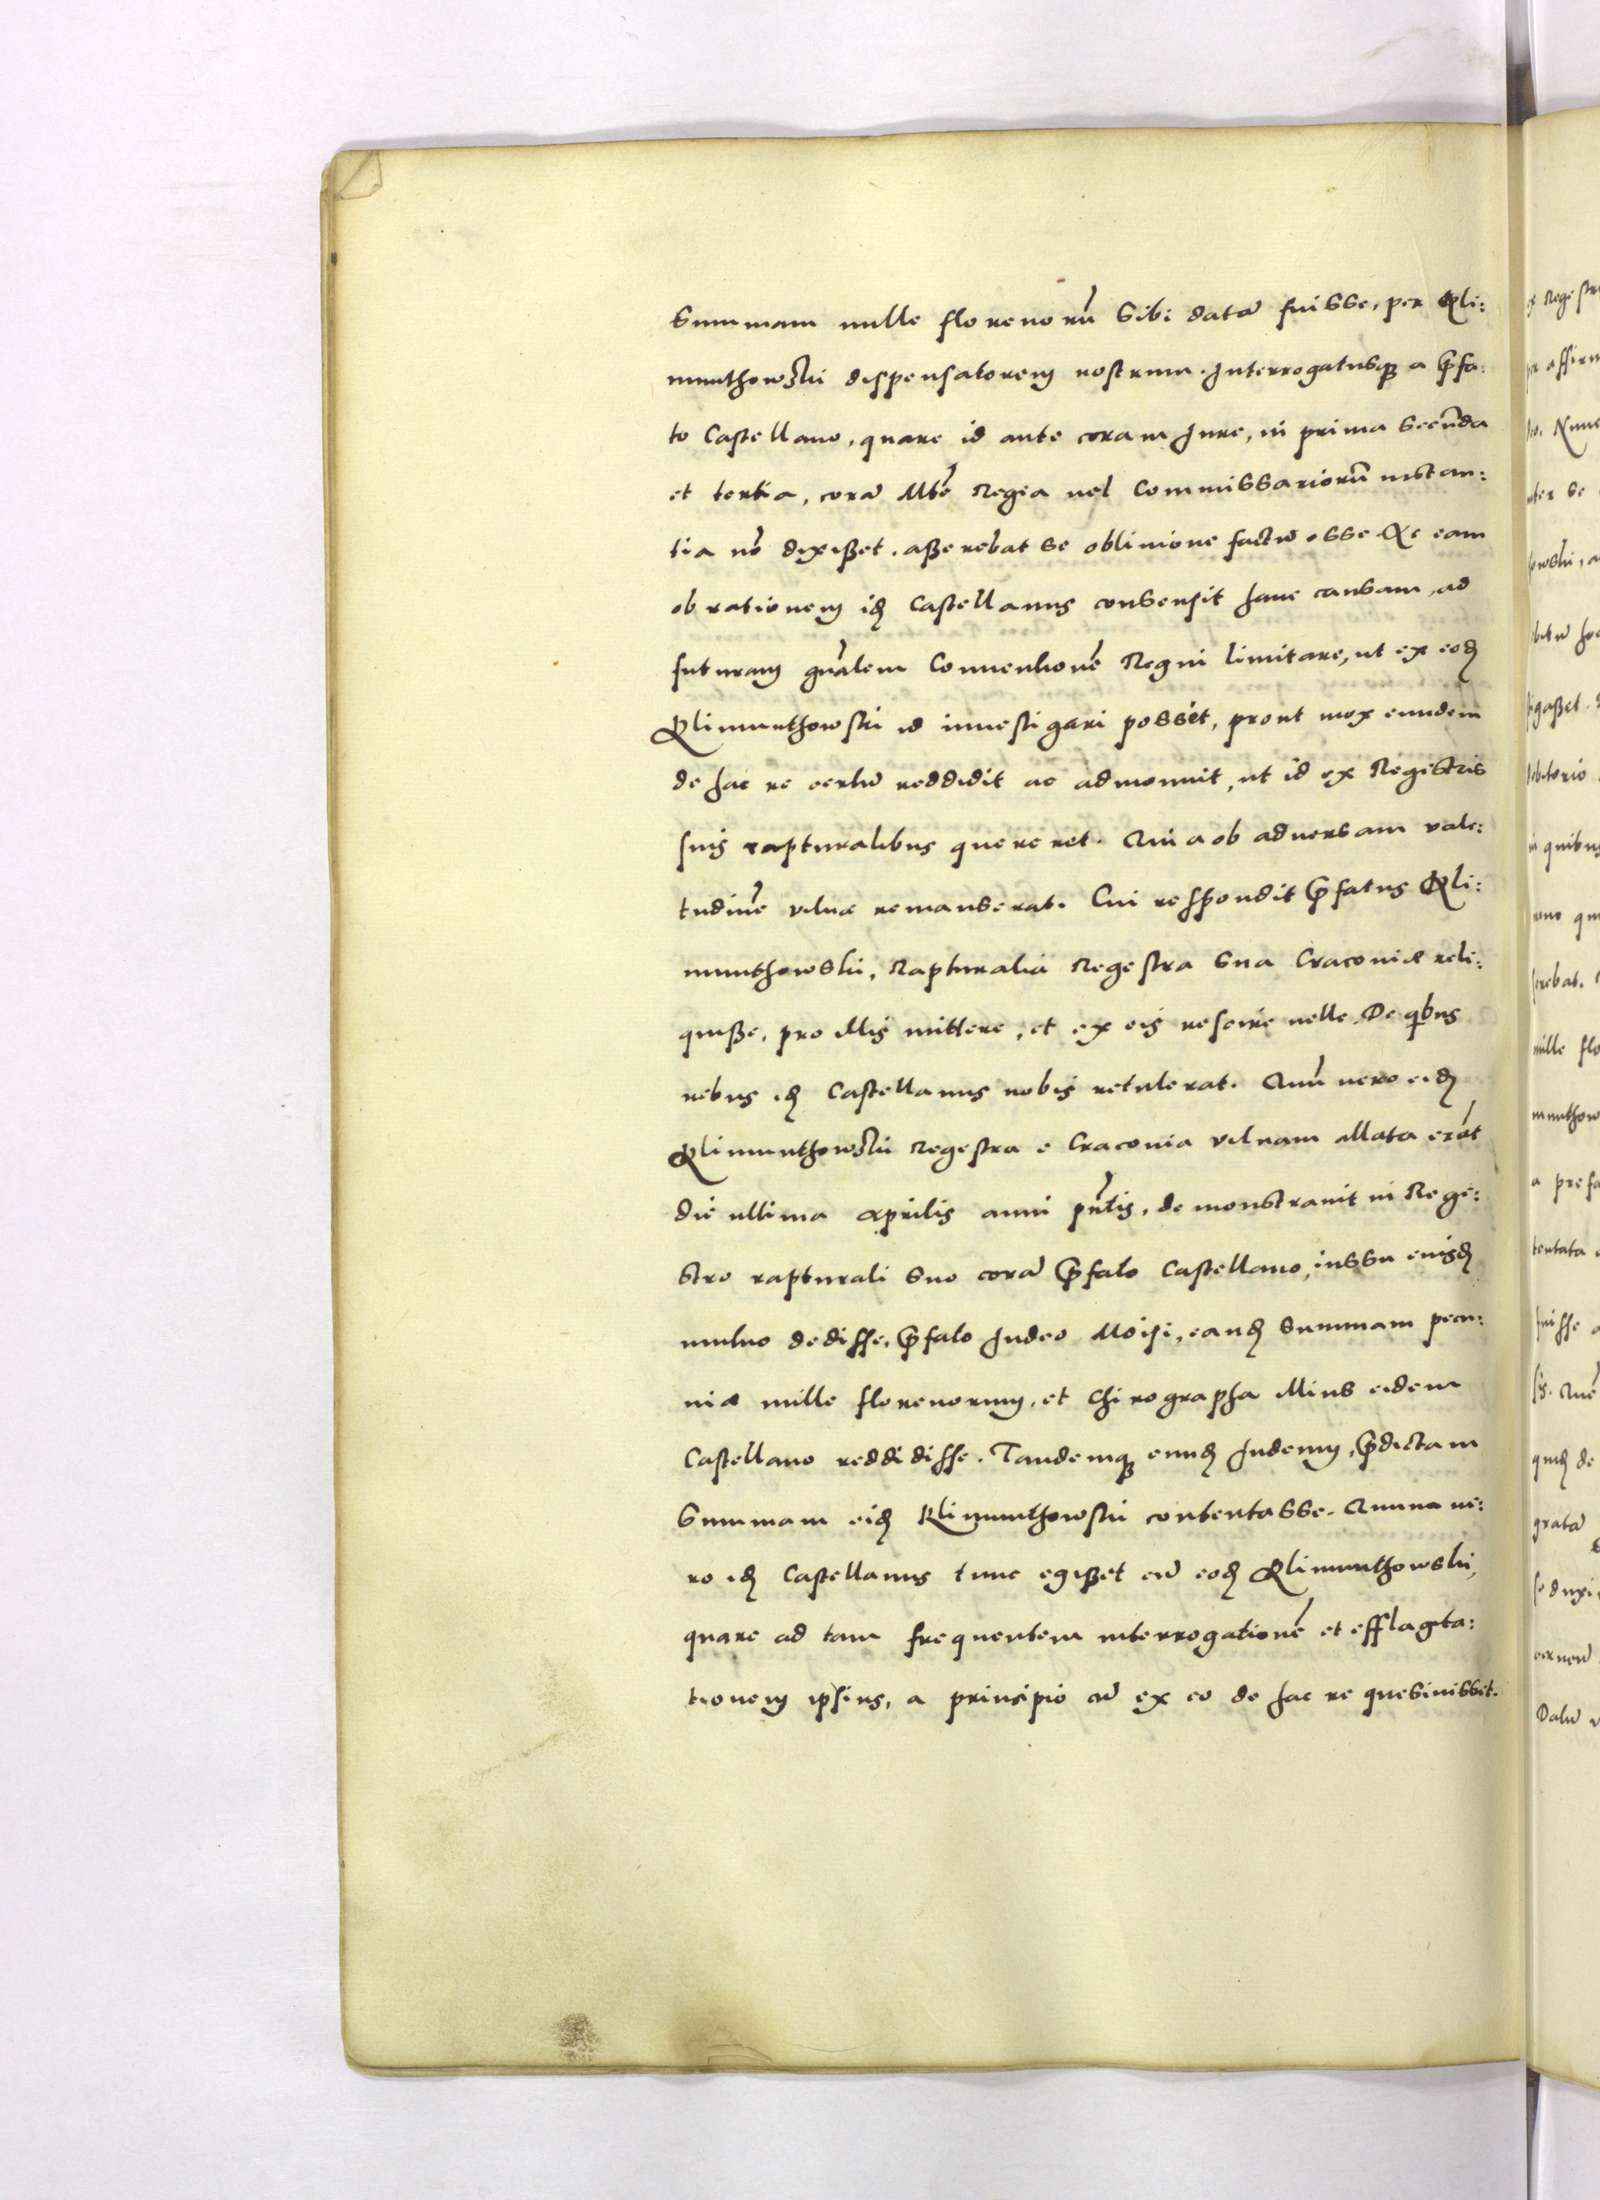 Summam mille florenorũ sibi datã fuisse, per Kli:
munthowski dispensatorem nostrum. Interrogatusqꝫ a p̃fa:
to Castellano, quare id ante coram Jure, in prima secũda
et tertia, corã Mte͂ Regia uel Commissariorũ instan:
tia nõ dixißet. aßerebat se obliuione factũ esse. Ac eam
ob rationem idẽ Castellanus consensit hanc causam, ad
futuram gn͂alem Conuentionẽ Regni limitare, ut ex eodẽ
Klimunthowski id inuestigari posset, prout mox eundem
de hac re certũ reddidit ac admonuit, ut id ex Regestris
suis rapturalibus quereret. Qui a ob aduersam vale:
tudinẽ vilnæ remanserat. Cui respondit p̃fatus Kli:
munthowski, Rapturalia Regestra sua Cracoviæ reli:
quiße, pro illis mittere, et ex eis rescire uelle. De qibus
rebus idẽ Castellanus nobis retulerat. Quũ uero eidẽ
Klimunthowski Regestra e Cracovia vilnam allata erãt
die ultima Aprilis anni pn͂tis, demonstrauit in Rege:
stro rapturali suo corã p̃fato Castellano, iussu eiusdẽ
mutuo dedisse, p̃fato Judeo Moisi, eandẽ summam pecu:
niæ mille florenorum, et Chirographa illius eidem
Castellano reddidisse. Tandemqꝫ eundẽ Judeum, p̃dictam
Summam eidẽ Klimunthowski contentasse. Quum ue:
ro idẽ Castellanus tunc egißet cũ eodẽ Klimunthowski,
quare ad tam frequentem interrogationẽ et efflagita:
tionem ipsius, a principio cũ ex eo de hac re quesiuisset.